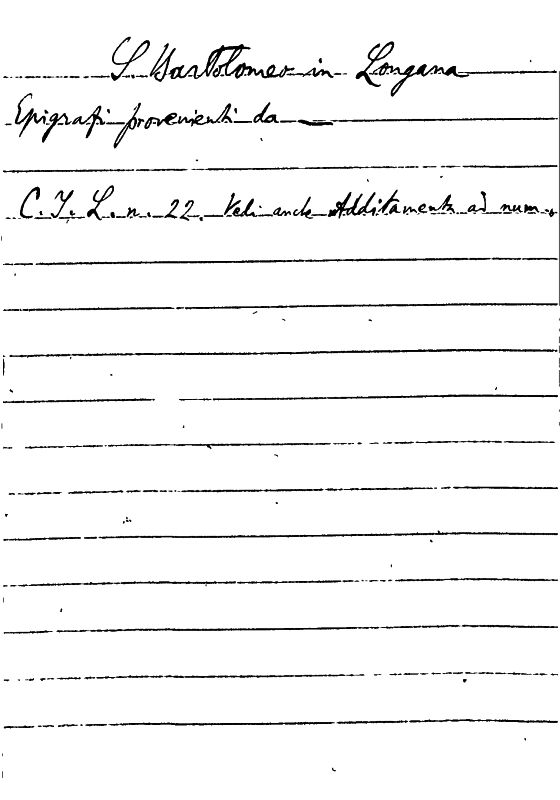 S. Bartolomeo in Longana
Epigrafi provenienti da —
C. I. L. n. 22. Vedi anche Additamenta ad num.